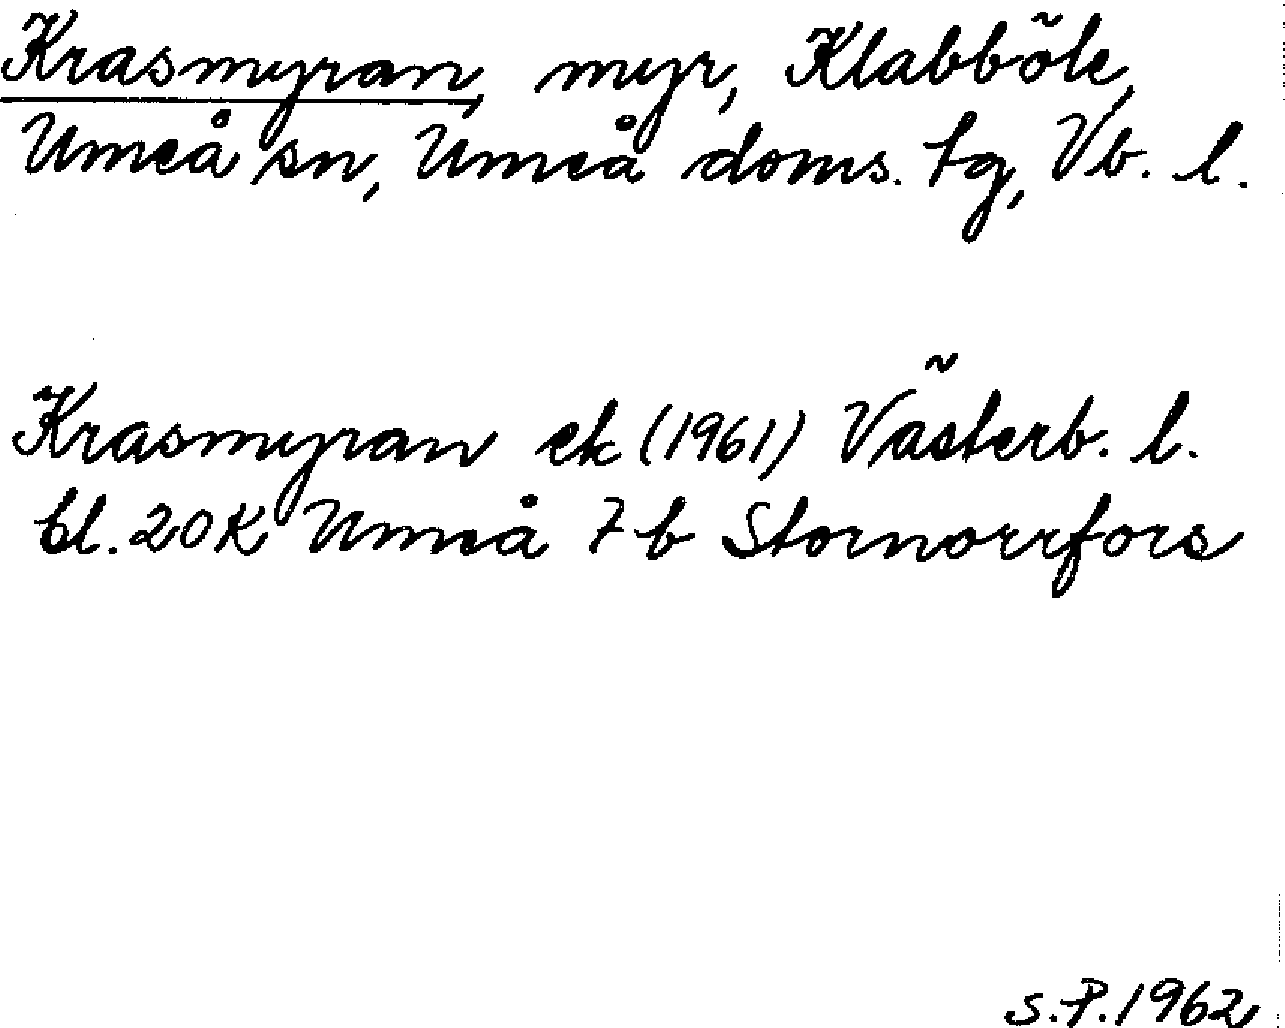 Krasmyran, myr, Klabböle,
Umeå sn, Umeå doms. tg, Vb. l.
Krasmyran ek (1961) Västerb. l.
bl. 20K Umeå 7b Stornorrfors
S.P. 1962